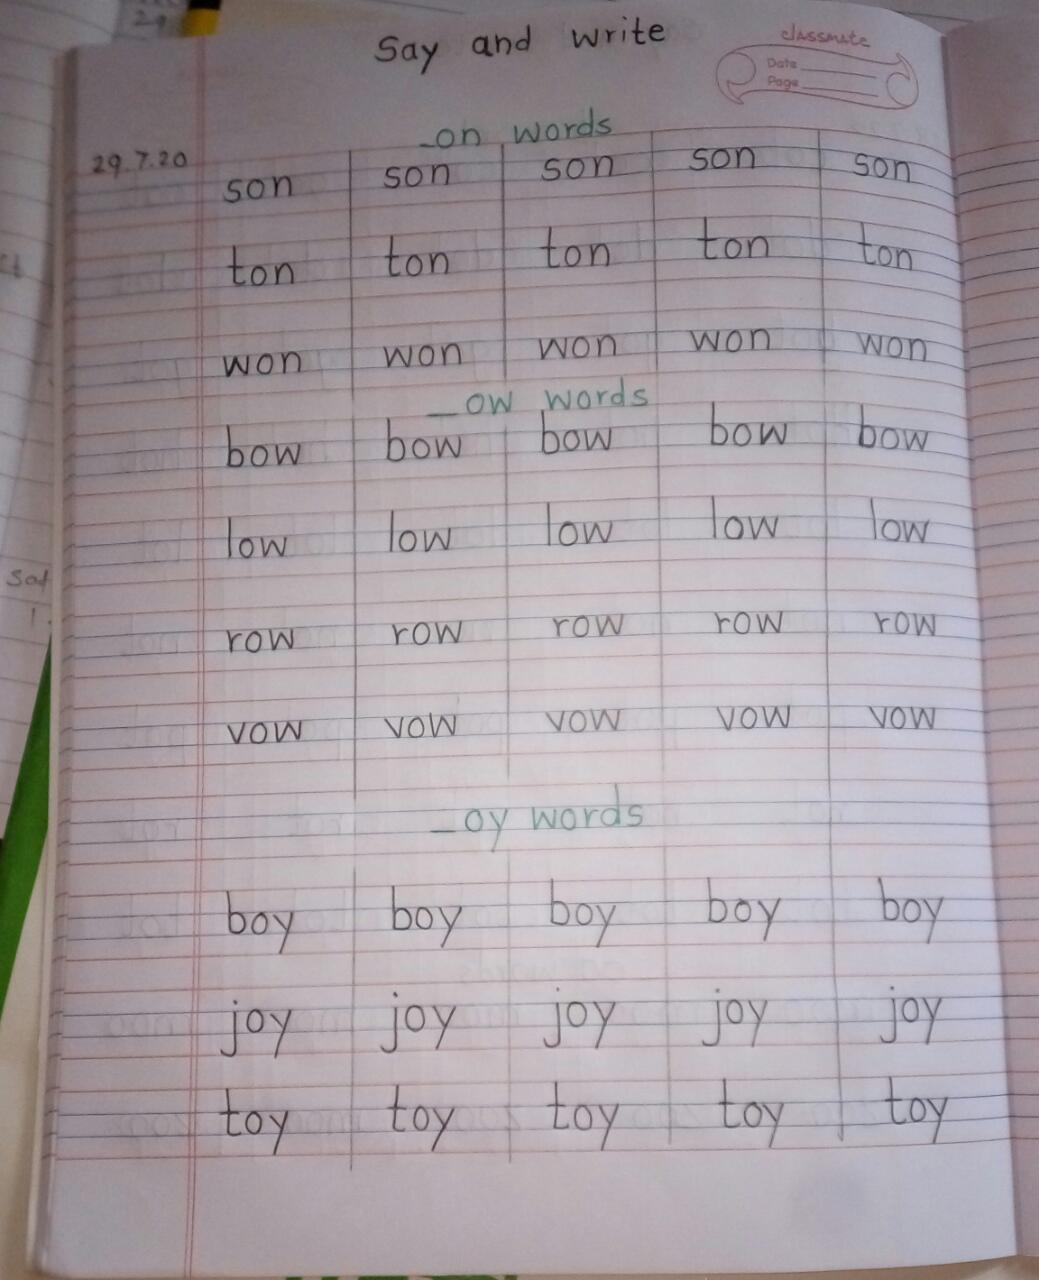 29
Say and write
classmate
Date
Page
_on words
29.7.20
son son son son son
ton ton ton ton ton
won won won won won
_ow words
bow bow bow bow bow
low low low low low
row row row row row
vow vow vow vow vow
_oy words
boy boy boy boy boy
joy joy joy joy joy
toy toy toy toy toy